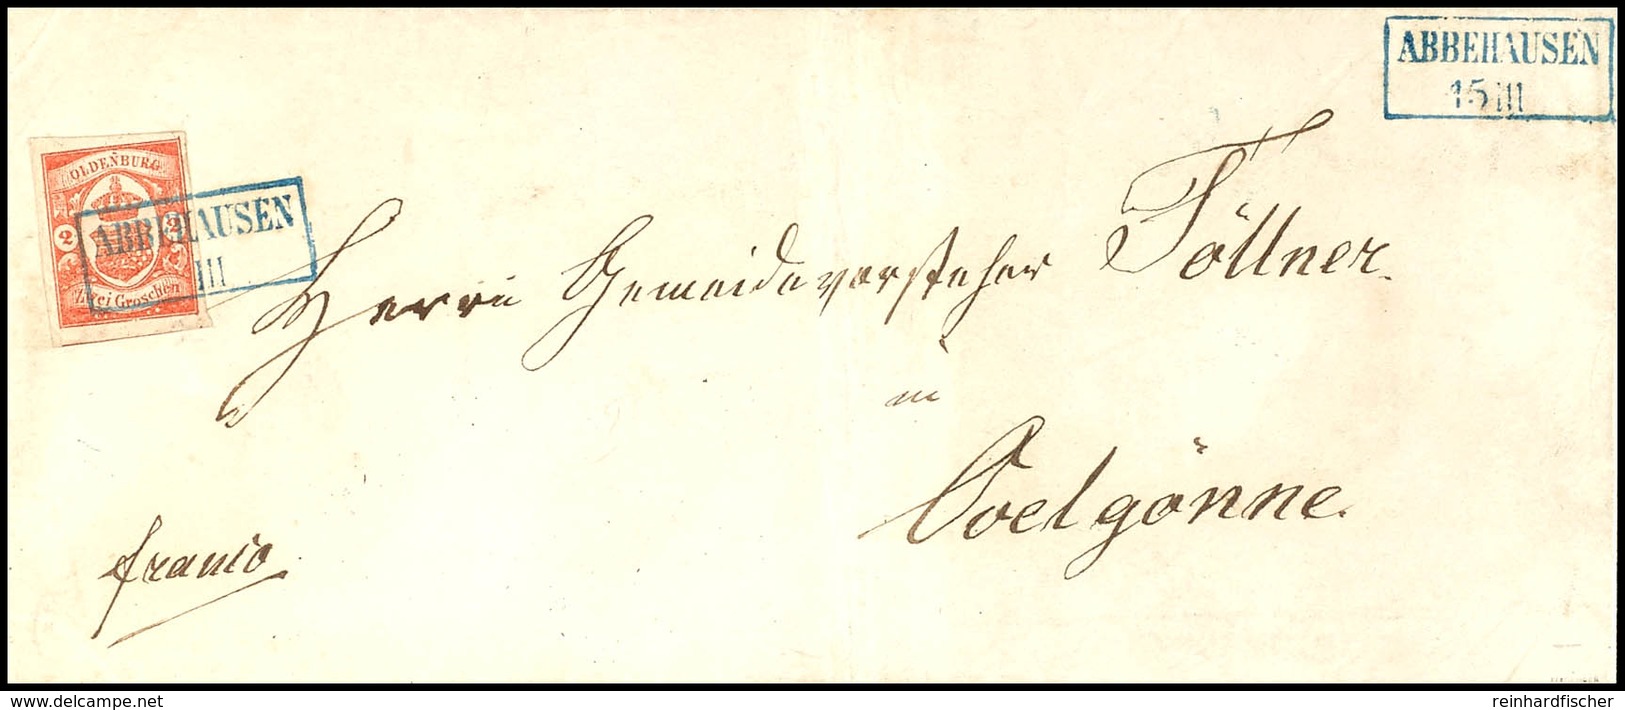 ABBEHAUSEN
15 III
OLDENBURG
2 2
Zwei Groschen
ABBEHAUSEN
III
Herrn Gemeindevorsteher Töllner
in
Ovelgönne.
franco
delcampe.net
reinhardfischer